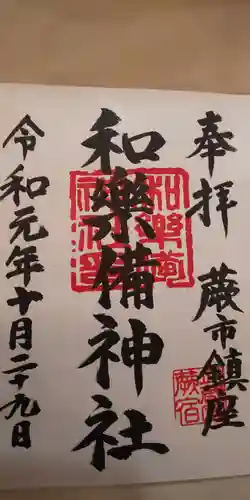 奉拝
蕨市鎮座
和樂備神社
令和元年十月二十九日
蕨宿